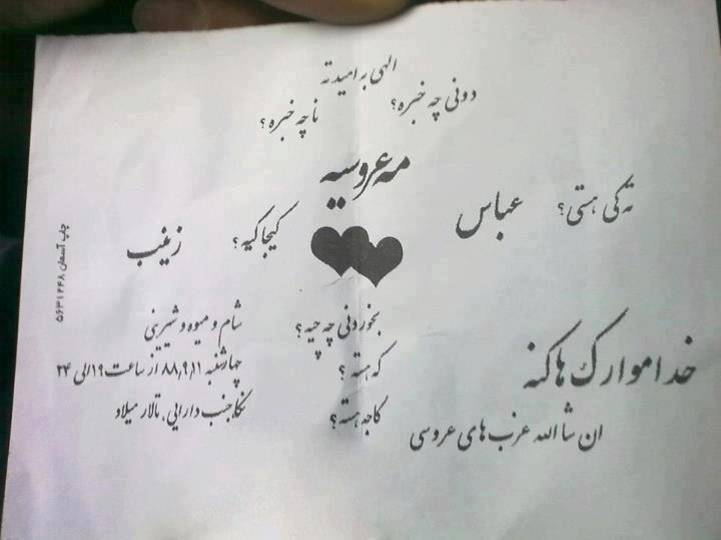 الهی به امید ته
دونی چه خبره؟
نا چه خبره؟
مه عروسیه
ته کی هستی؟
عباس
کیجا کیه؟
زینب
بخوردنی چه چیه؟
شام و میوه و شیرینی
که هسته؟
چهارشنبه ۸۸٫۹٫۱۱ از ساعت ۱۹ الی ۲۴
کاجه هسته؟
نکا جنب دارایی، تالار میلاد
خدا موارک هاکنه
ان شاالله عزب های عروسی
چاپ آسمان ۵۶۳۱۲۴۸